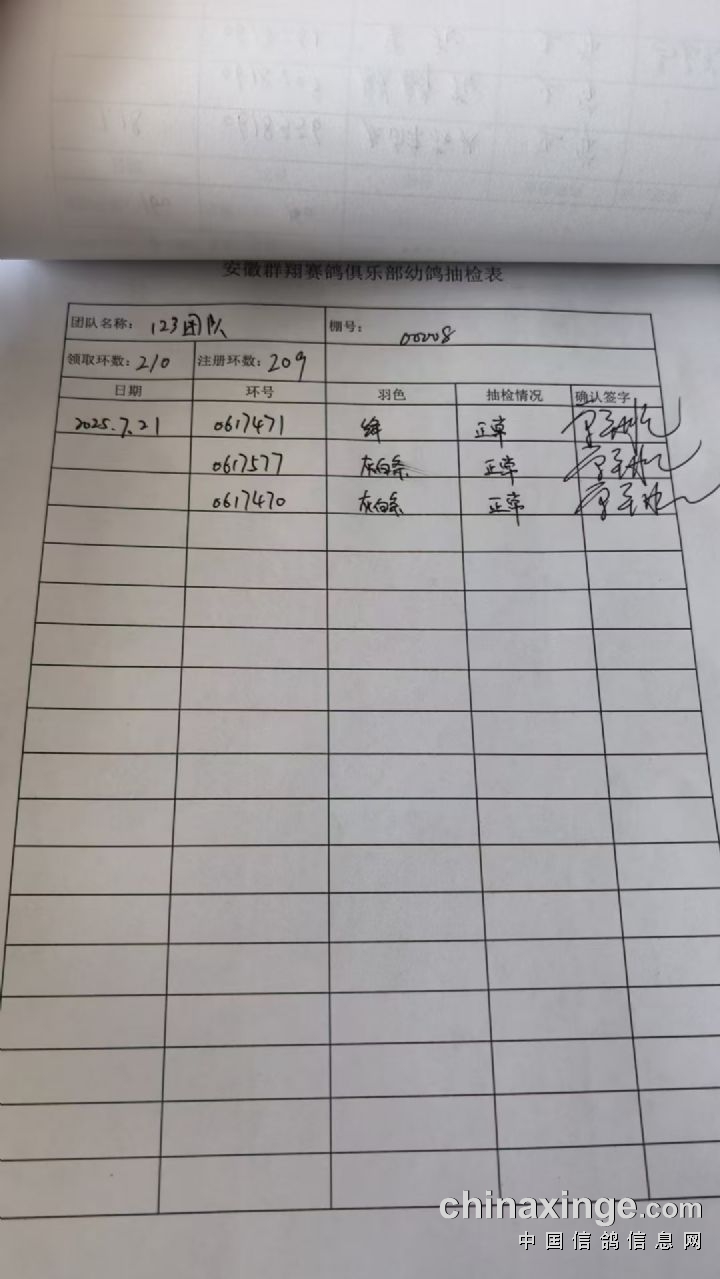 安徽群翔赛鸽俱乐部幼鸽抽检表
团队名称: 123团队 棚号: 00008
领取环数: 210 注册环数: 209
日期 环号 羽色 抽检情况 确认签字
2025.7.21 0617471 绛 正常
0617577 灰白条 正常
0617470 灰白条 正常
chinaxinge.com
中国信鸽信息网